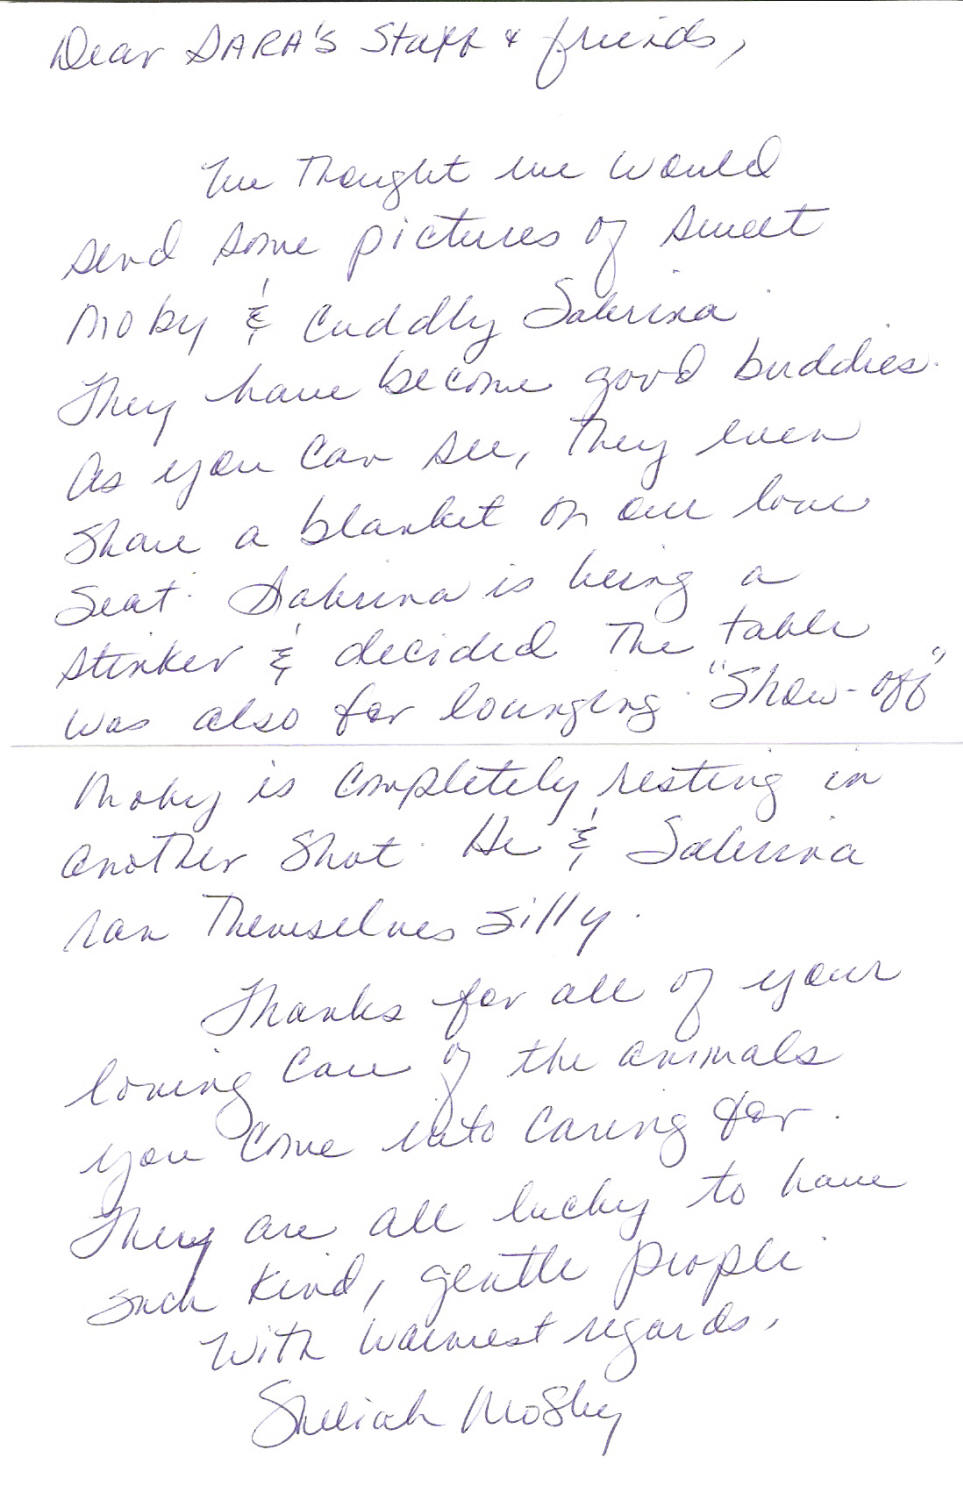 Dear DARA'S Staff & friends,
We Thought we would
send some pictures of sweet
Moby & Cuddly Sabrina
They have become good buddies.
As you can see, they even
share a blanket on our love
seat. Sabrina is being a
stinker & decided The table
was also for lounging. "Show-off"
Moby is completely resting in
another shot. He & Sabrina
ran Themselves silly.
Thanks for all of your
loving care of the animals
you come into caring for.
They are all lucky to have
such kind, gentle people
With warmest regards,
Mosby